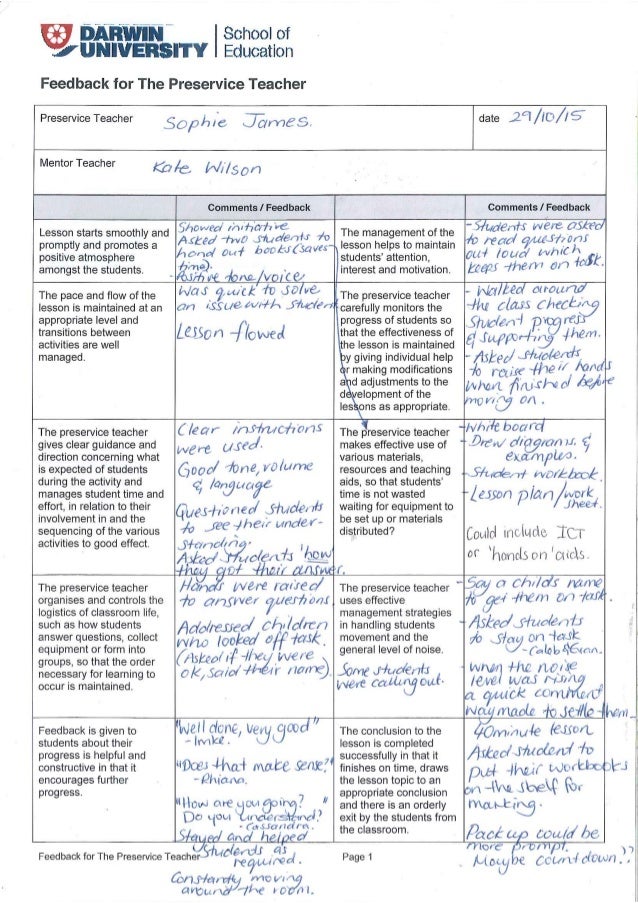 DARWIN
UNIVERSITY
School of
Education
Feedback for The Preservice Teacher
Preservice Teacher
Sophie James.
date 29/10/15
Mentor Teacher
Kate Wilson
Comments / Feedback
Comments / Feedback
Lesson starts smoothly and
promptly and promotes a
positive atmosphere
amongst the students.
Showed initiative
Asked two students to
hand out books (saves
time).
- Positive tone/voice
The management of the
lesson helps to maintain
students' attention,
interest and motivation.
- Students were asked
to read questions
out loud which
keeps them on task.
The pace and flow of the
lesson is maintained at an
appropriate level and
transitions between
activities are well
managed.
Was quick to solve
an issue with student
Lesson flowed
The preservice teacher
carefully monitors the
progress of students so
that the effectiveness of
the lesson is maintained
by giving individual help
or making modifications
and adjustments to the
development of the
lessons as appropriate.
- Walked around
the class checking
student progress
& supporting them.
- Asked students
to raise their hands
when finished before
moving on.
The preservice teacher
gives clear guidance and
direction concerning what
is expected of students
during the activity and
manages student time and
effort, in relation to their
involvement in and the
sequencing of the various
activities to good effect.
Clear instructions
were used.
Good tone, volume
& language
Questioned students
to see their under-
standing.
Asked students 'how
they got their answer.
The preservice teacher
makes effective use of
various materials,
resources and teaching
aids, so that students'
time is not wasted
waiting for equipment to
be set up or materials
distributed?
- Whiteboard
- Drew diagrams &
examples.
- Student workbook.
- Lesson plan/work
sheet.
Could include ICT
or 'hands on' aids.
The preservice teacher
organises and controls the
logistics of classroom life,
such as how students
answer questions, collect
equipment or form into
groups, so that the order
necessary for learning to
occur is maintained.
Hands were raised
to answer questions.
Addressed children
who looked off task.
(Asked if they were
ok, said their name).
The preservice teacher
uses effective
management strategies
in handling students
movement and the
general level of noise.
Some students
were calling out.
- Say a childs name
to get them on task.
- Asked students
to stay on task
- Caleb &
- When the noise
level was rising
a quick comment
was made to settle them
Feedback is given to
students about their
progress is helpful and
constructive in that it
encourages further
progress.
"Well done, very good"
- Imke.
"Does that make sense?"
- Rhiana.
"How are you going? "
Do you understand?
- Cassandra.
Stayed and helped
students as
required.
Constantly moving
around the room.
The conclusion to the
lesson is completed
successfully in that it
finishes on time, draws
the lesson topic to an
appropriate conclusion
and there is an orderly
exit by the students from
the classroom.
40 minute lesson
Asked student to
put their workbooks
on the shelf for
marking.
Pack up could be
more prompt.
Maybe countdown??
Feedback for The Preservice Teacher
Page 1